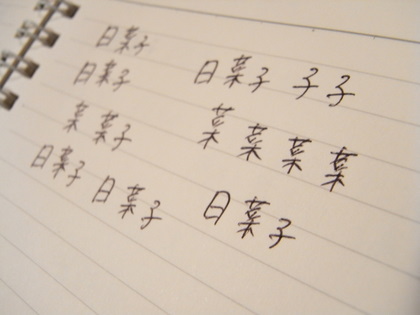 日菜子
日菜子 日菜子 子子
菜菜子 菜菜菜菜
日菜子日菜子 日菜子